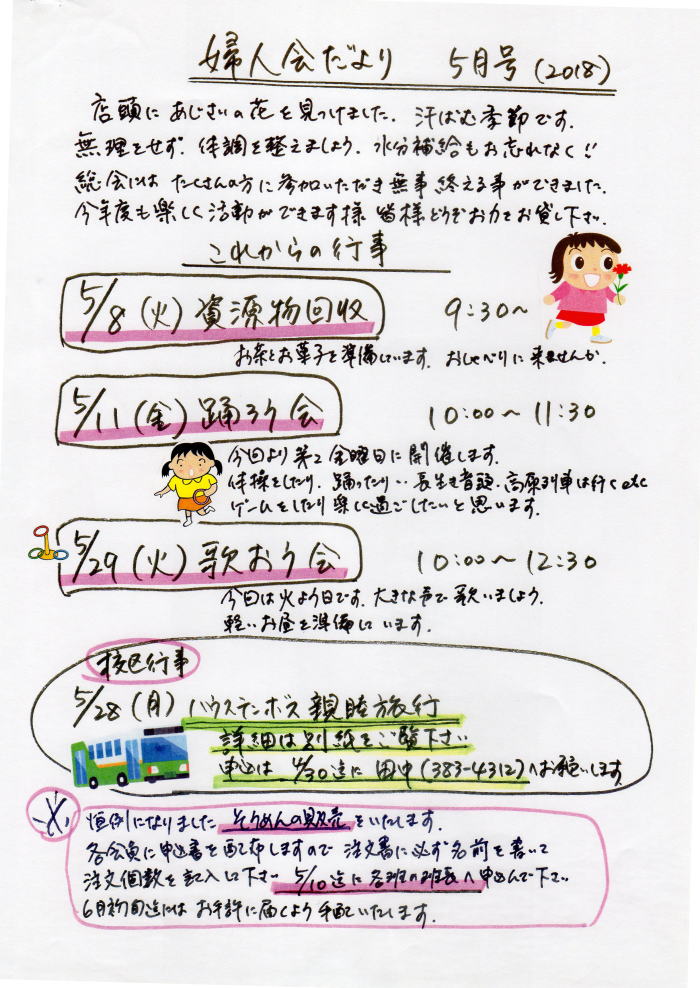 婦人会だより 5月号(2018)
店頭に あじさいの花を見つけました. 汗ばむ季節です.
無理をせず. 体調を整えましょう. 水分補給もお忘れなく!!
総会には たくさんの方に参加いただき無事終える事ができました.
今年度も楽しく活動ができます様 皆様どうぞお力をお貸し下さい.
これからの行事
5/8(火)資源物回収 9:30〜
お茶とお菓子を準備しています. おしゃべりに来ませんか.
5/11(金)踊ろう会 10:00〜11:30
今回より第2金曜日に開催します.
体操をしたり. 踊ったり‥長生き音頭. 高原列車は行く etc
ゲームをしたり楽しく過ごしたいと思います.
5/29(火)歌おう会 10:00〜12:30
今回は火よう日です. 大きな声で歌いましょう.
軽いお昼を準備しています.
校区行事
5/28(月)ハウステンボス親睦旅行
詳細は別紙をご覧下さい
申込は 4/30迄に 田中(383-4312)へお願いします
恒例になりました そうめんの販売をいたします.
各会員に申込書を配布しますので 注文書に必ず名前を書いて
注文個数を記入して下さい 5/10迄に各班の班長へ申込んで下さい
6月初旬迄には お手許に届くよう手配いたします.